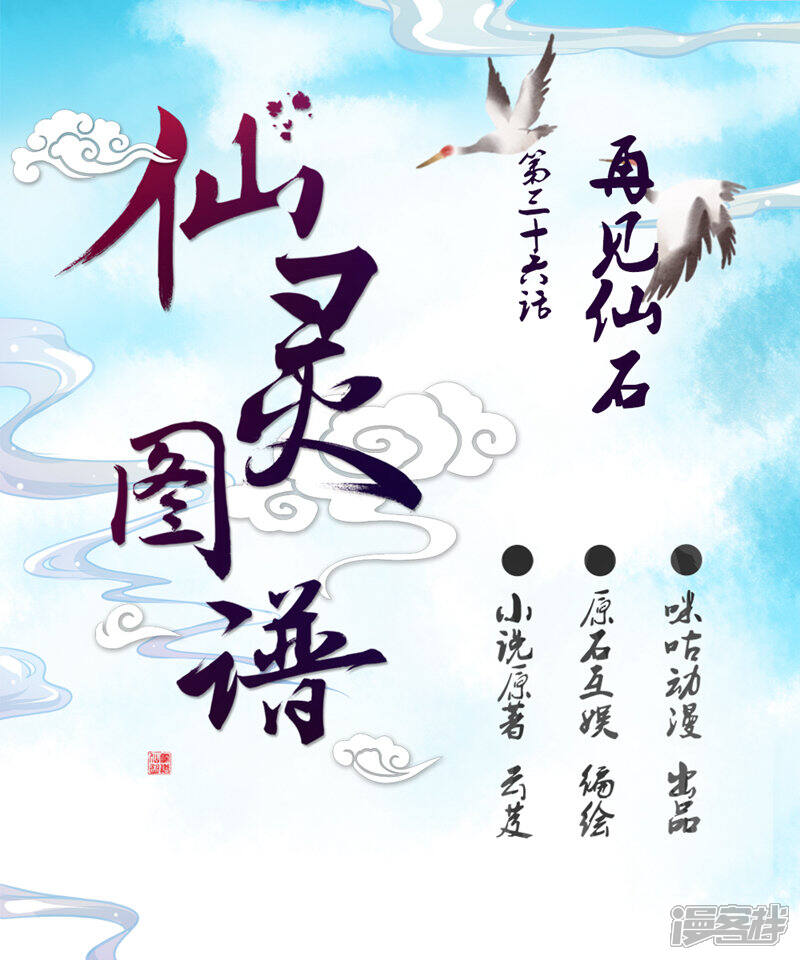 仙灵图谱
再见仙石
第三十六话
咪咕动漫 出品
原石互娱 编绘
小说原著 云芨
漫客栈